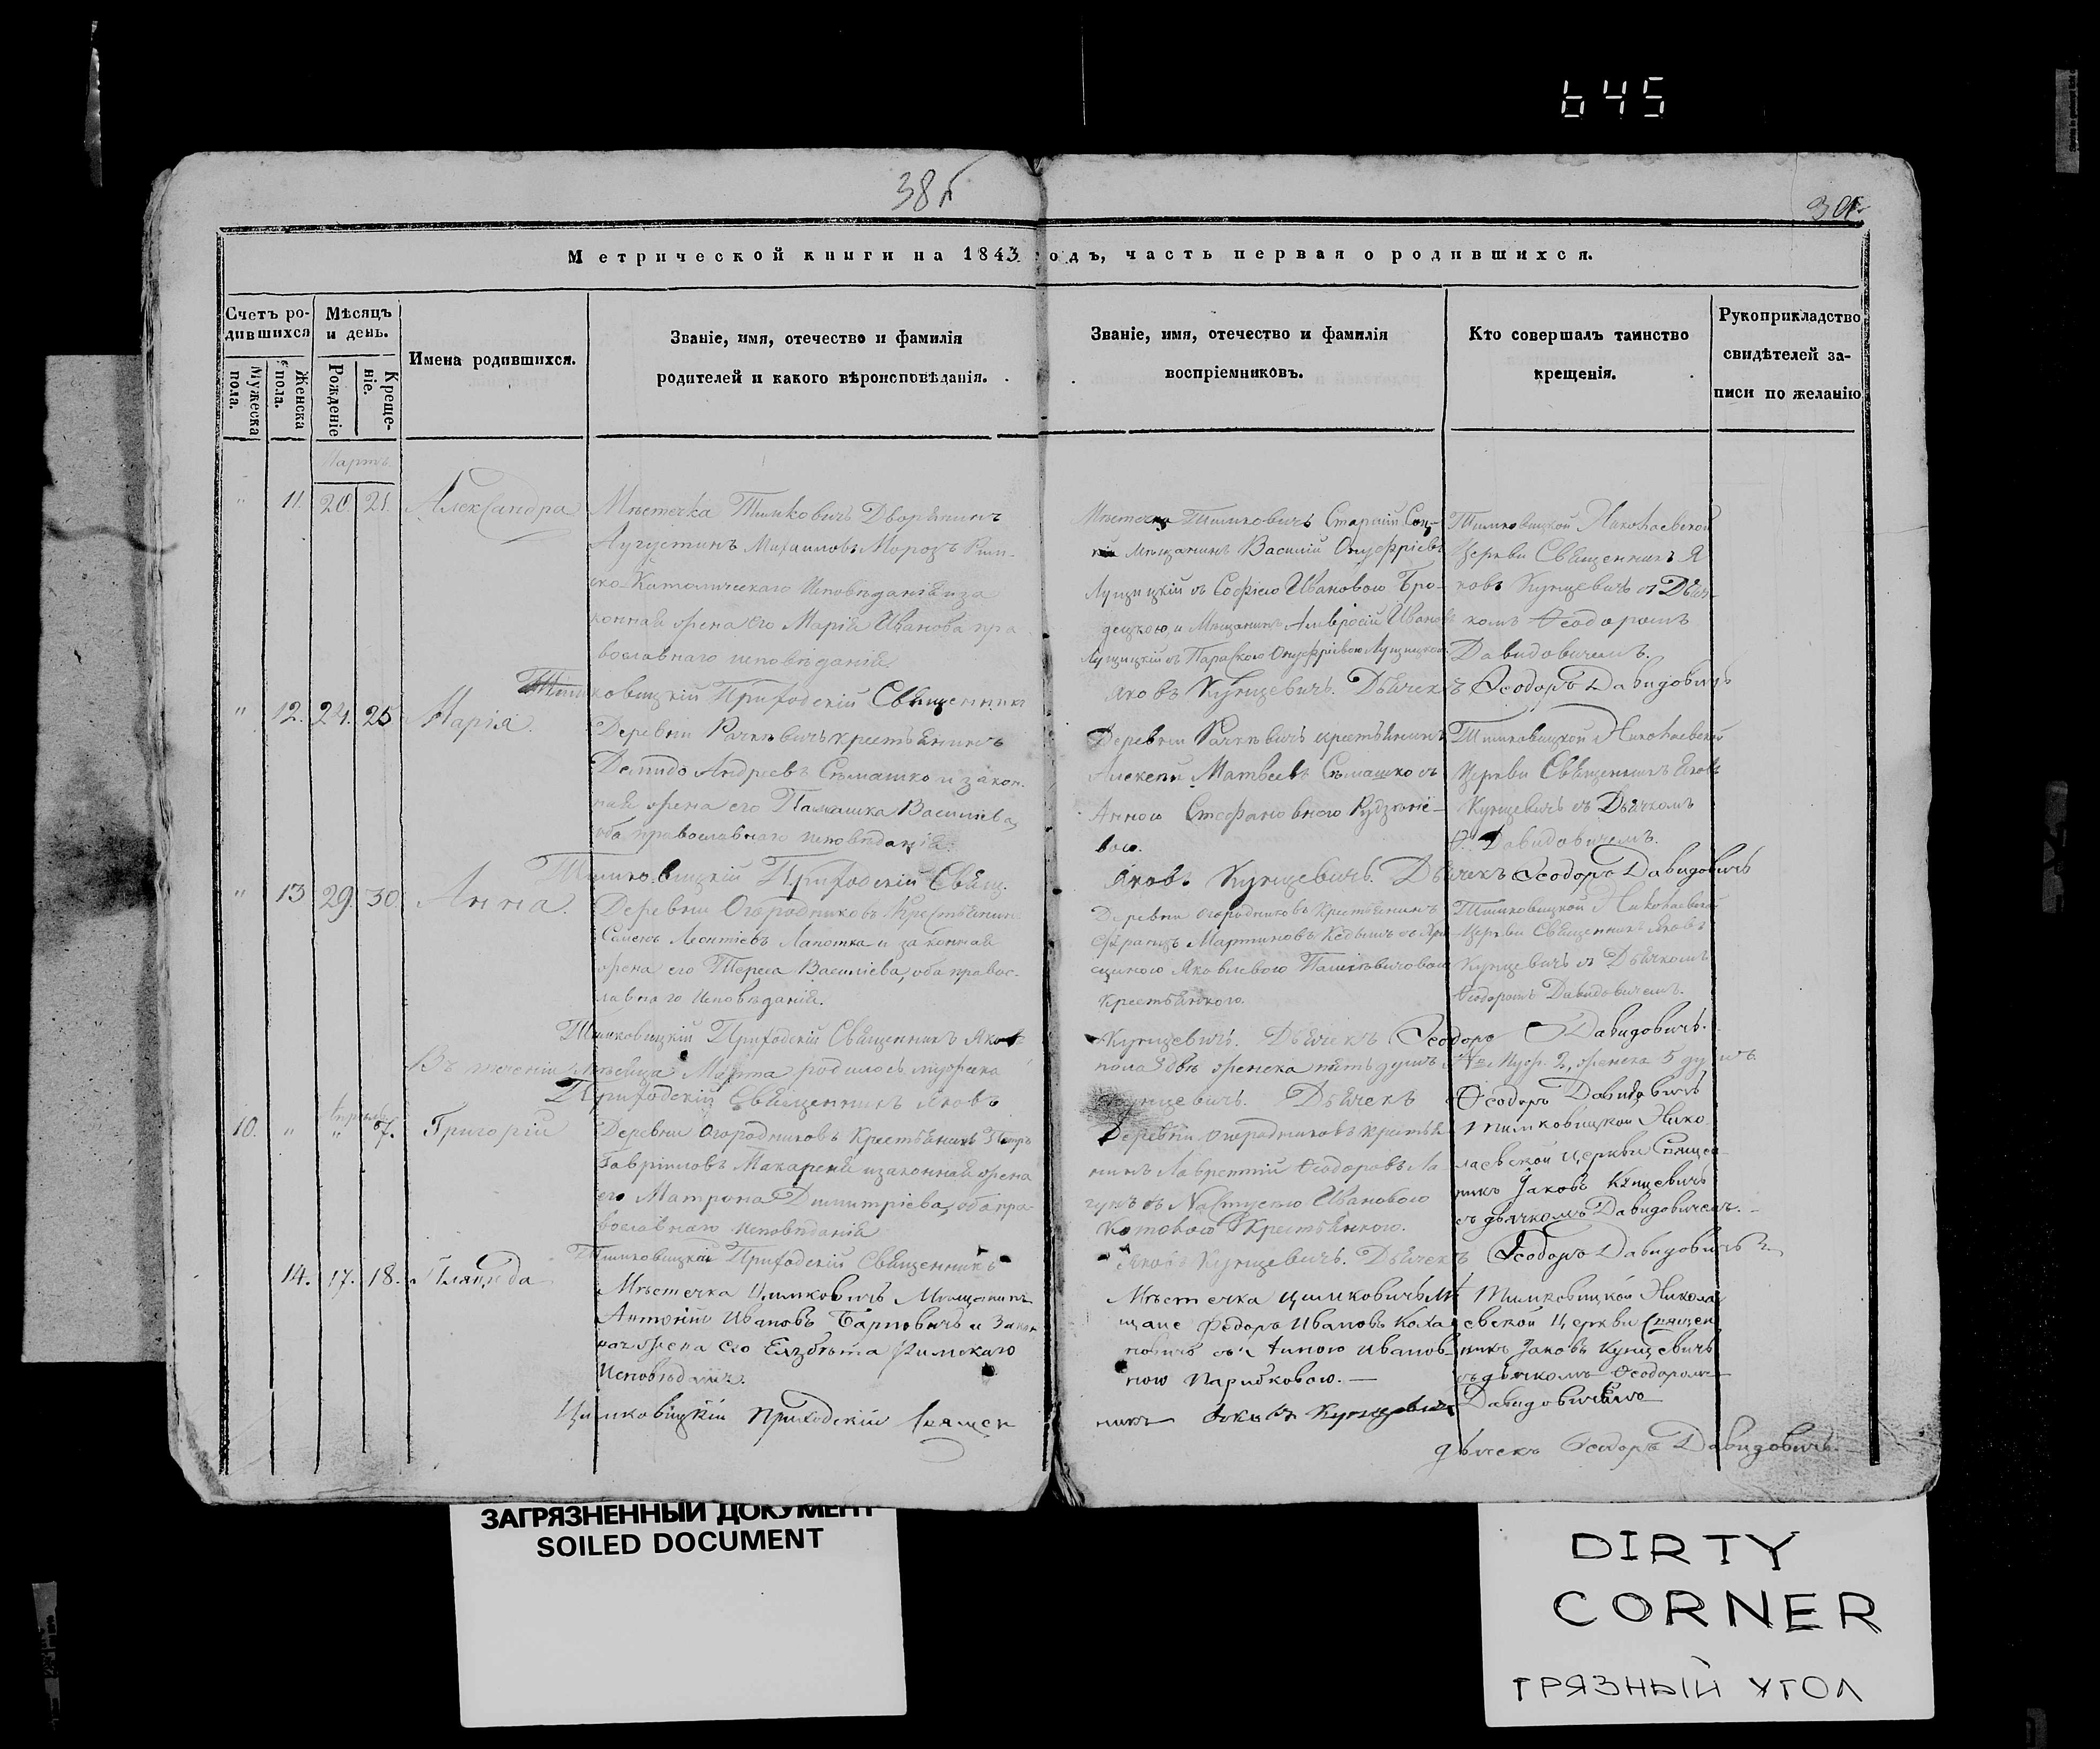 645
38
Метрической книги на 1843 годъ, часть первая о родившихся.
Счетъ родившихся
Мужеска пола.
Женска пола.
Мѣсяцъ и день.
Рожденіе
Крещеніе.
Имена родившихся.
Званіе, имя, отечество и фамилія
родителей и какого вѣроисповѣданія.
Званіе, имя, отечество и фамилія
воспріемниковъ.
Кто совершалъ таинство
крещенія.
Рукоприкладство
свидѣтелей за-
писи по желанію
Мартъ
" 11. 20. 21. Александра
Мѣстечка Тимковичъ Дворянинъ
Августинъ Михаиловъ Морозъ Рим-
ско-Католическаго Исповѣданія и за
конная жена его Марія Иванова пра
вославнаго исповѣданія
Мѣстечка Тимковичъ Старшій
Мѣщанинъ Василій Онуфріевъ
Лущицкій съ Софіею Ивановою Бро-
децкою и Мѣщанинъ Амвросій Иванов
Лущицкій съ Параскою Онуфріевою Лущицкою
Тимковицкой Николаевской
Церкви Священникъ Я
ковъ Кунцевичъ съ Дьяч-
комъ Ѳеодоромъ
Давидовичемъ.
Тимковицкій Приходскій Священникъ Яковъ Кунцевичъ. Дьячекъ Ѳеодоръ Давидовичъ
" 12. 24. 25 Марія.
Деревни Рачкевичъ крестьянинъ
Демидъ Андреевъ Сѣмашко и закон.
ная жена его Василіева,
оба православнаго исповѣданія.
Деревни Рачкевичъ крестьянинъ
Алексей Матвеевъ Сѣмашко съ
Анною Стефановною
вою.
Тимковицкой Николаевской
Церкви Священникъ Яковъ
Кунцевичъ съ Дьячкомъ
Ѳ. Давидовичемъ.
Тимковицкій Приходскій Свящ. Яковъ Кунцевичъ. Дьячекъ Ѳеодоръ Давидовичъ
" 13 29. 30. Анна.
Деревни Огородниковъ Крестьянин
Семенъ Леонтіевъ Лапотка и законная
жена его Тереса Василіева, оба правос-
лавнаго Исповѣданія.
Деревни Огородниковъ Крестьянинъ
Францъ Мартиновъ съ
Яковлевою
Крестьянкою.
Тимковицкой Николаевской
Церкви Священникъ Яковъ
Кунцевичъ съ Дьячкомъ
Ѳеодоромъ Давидовичемъ.
Тимковицкій Приходскій Священникъ Яковъ Кунцевичъ. Дьячекъ Ѳеодоръ Давидовичъ.
Въ теченіи Мѣсяца Марта родилось мужеска пола двѣ женска пять душъ Муж. 2, женска 5 душъ
Приходскій Священникъ Яковъ Кунцевичъ. Дьячекъ Ѳеодоръ Давидовичъ
Апрель
10. " " 7. Григорій
Деревни Огородниковъ Крестьянинъ Петръ
Гавріиловъ Макареня и законная жена
его Матрона Димитріева, оба пра-
вославнаго исповѣданія
Деревни Огородниковъ крестья
нинъ Лаврентій Ѳеодоровъ Ла-
гунъ съ Настусею Ивановою
Котовою Крестьянкою.
Тимковицкой Нико
лаевской церкви Священ
никъ Яковъ Кунцевичъ
съ дьячкомъ Давидовичемъ.
Тимковицкій Приходскій Священникъ Яковъ Кунцевичъ. Дьячекъ Ѳеодоръ Давидовичъ
14. 17. 18.
Мѣстечка Цимковичъ Мѣщанинъ
Антоній Ивановъ и Закон
ная жена его Елзбѣта Римскаго
Исповѣданія.
Мѣстечка Цимковичъ Мѣ
щане Фѣдоръ Ивановъ Коха
новичъ съ Анною Иванов
ною Парибковою.—
Тимковицкой Никола
евской Церкви Священ
никъ Яковъ Кунцевичъ
съ дьячкомъ Ѳеодоромъ
Давидовичемъ
Цимковіцкій Приходскій Священ никъ Яковъ Кунцевичъ
дьячекъ Ѳеодоръ Давидовичъ.
ЗАГРЯЗНЕННЫЙ ДОКУМЕНТ
SOILED DOCUMENT
DIRTY
CORNER
ГРЯЗНЫЙ УГОЛ